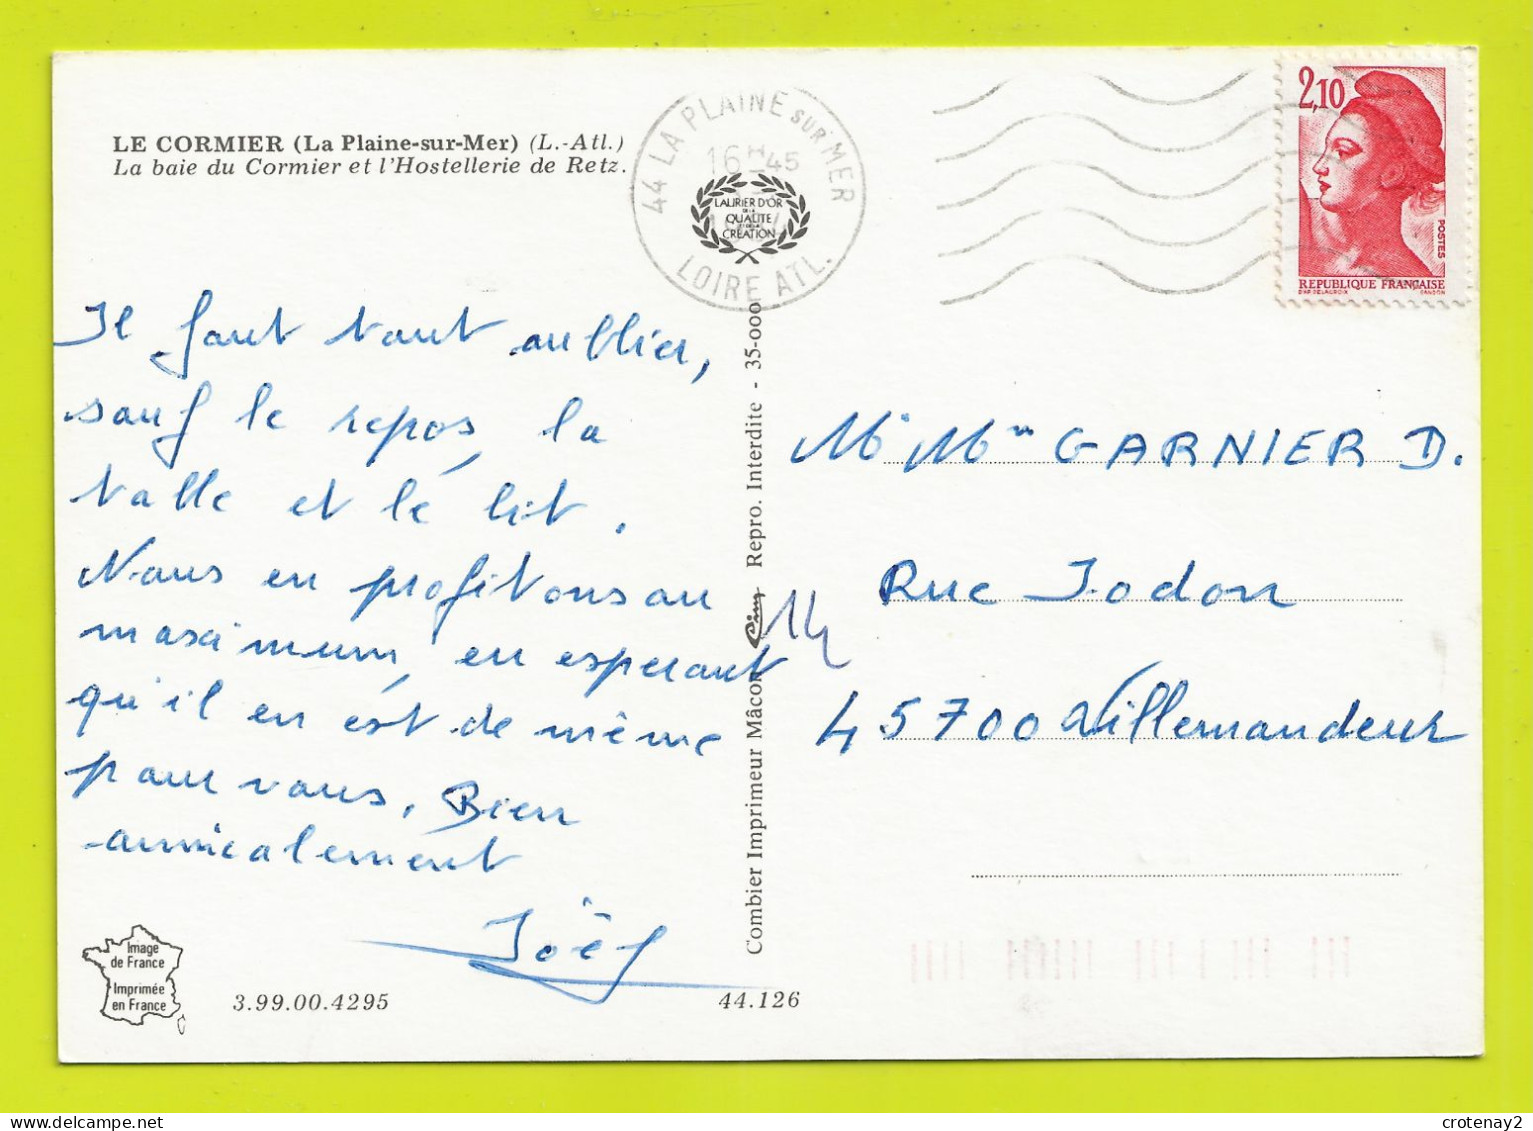 LE CORMIER (La Plaine-sur-Mer) (L.-Atl.)
La baie du Cormier et l'Hostellerie de Retz.
44 LA PLAINE SUR MER
16 H 45
LAURIER D'OR
DE LA
QUALITÉ
ET DE LA
CRÉATION
LOIRE ATL.
2,10
POSTES
REPUBLIQUE FRANÇAISE
D'AP. DELACROIX GANDON
Il faut tout oublier,
sauf le repos, la
table et le lit.
Nous en profitons au
maximum, en espérant
qu'il en est de même
pour vous. Bien
amicalement
Joël
Combier Imprimeur Mâcon Cim Repro. Interdite - 35-000
Mr Mme GARNIER D.
14
Rue Jodon
45700 Villemandeur
Image
de France
Imprimée
en France
3.99.00.4295
44.126
crotenay2